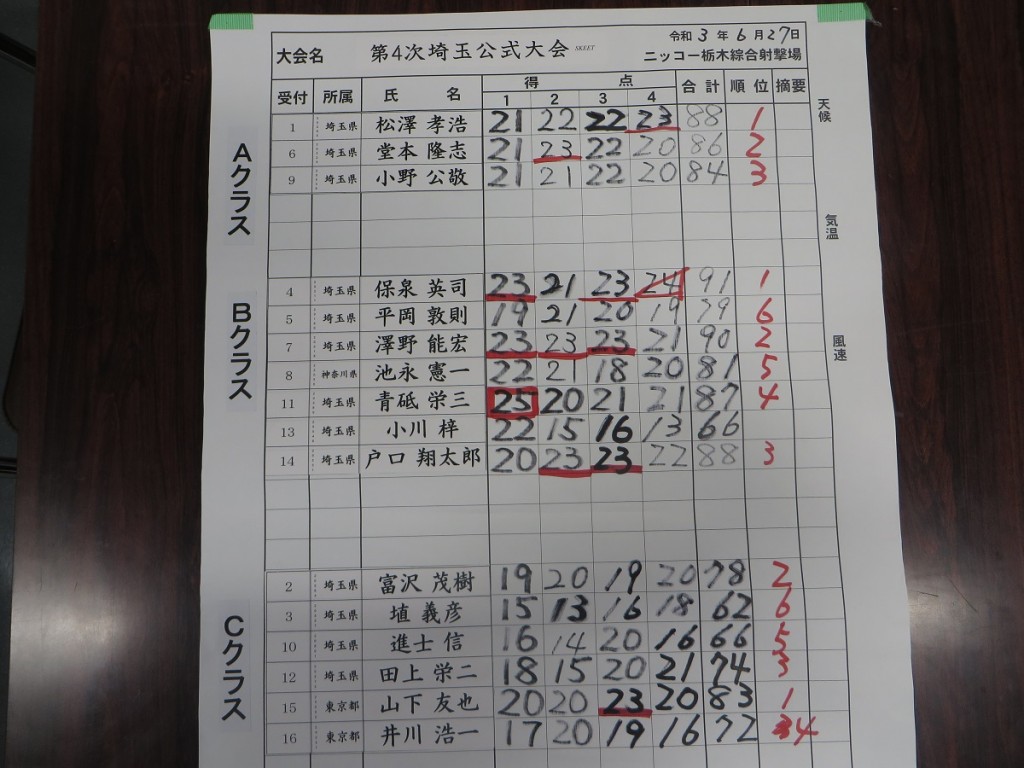 令和 3 年 6 月 27日
大会名 第4次埼玉公式大会 SKEET ニッコー栃木綜合射撃場
受付 所属 氏 名 得 点 合計 順位 摘要
1 2 3 4
天候
Aクラス
1 埼玉県 松澤 孝浩 21 22 22 23 88 1
6 埼玉県 堂本 隆志 21 23 22 20 86 2
9 埼玉県 小野 公敬 21 21 22 20 84 3
気温
Bクラス
4 埼玉県 保泉 英司 23 21 23 24 91 1
5 埼玉県 平岡 敦則 19 21 20 19 79 6
7 埼玉県 澤野 能宏 23 23 23 21 90 2
風速
8 神奈川県 池永 憲一 22 21 18 20 81 5
11 埼玉県 青砥 栄三 25 20 21 21 87 4
13 埼玉県 小川 梓 22 15 16 13 66
14 埼玉県 戸口 翔太郎 20 23 23 22 88 3
Cクラス
2 埼玉県 富沢 茂樹 19 20 19 20 78 2
3 埼玉県 埴 義彦 15 13 16 18 62 6
10 埼玉県 進士 信 16 14 20 16 66 5
12 埼玉県 田上 栄二 18 15 20 21 74 3
15 東京都 山下 友也 20 20 23 20 83 1
16 東京都 井川 浩一 17 20 19 16 72 4